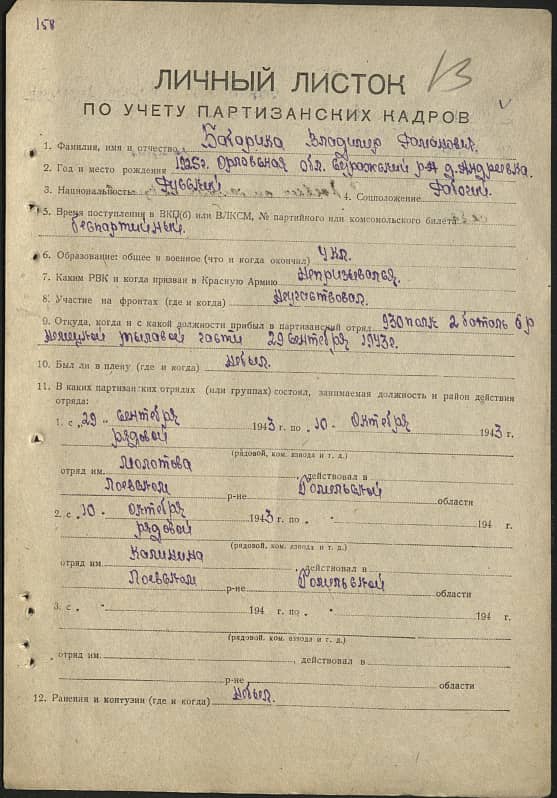 158
13
ЛИЧНЫЙ ЛИСТОК
ПО УЧЕТУ ПАРТИЗАНСКИХ КАДРОВ
1. Фамилия, имя и отчество Бабарика Владимир Романович.
2. Год и место рождения 1925г. Орловская обл. Суражский р-н д. Андреевка.
3. Национальность Русский 4. Соцположение Рабочий
5. Время поступления в ВКП(б) или ВЛКСМ, № партийного или комсомольского билета
беспартийный.
6. Образование: общее и военное (что и когда окончил) 4 кл.
7. Каким РВК и когда призван в Красную Армию Непризывался.
8. Участие на фронтах (где и когда) Неучаствовал.
9. Откуда, когда и с какой должности прибыл в партизанский отряд 930 полк 2 баталь
Немецкой тыловой части 29 сентября 1943г.
10. Был ли в плену (где и когда) Небыл.
11. В каких партизанских отрядах (или группах) состоял, занимаемая должность и район действия
отряда:
1. с „29" Сентября 1943 г. по „10" Октября 1943 г.
рядовой
(рядовой, ком. взвода и т. д.)
отряд им. Молотова, действовал в
Лоевском р-не Гомельской области
2. с „10" октября 1943 г. по „ " 194 г.
рядовой
(рядовой, ком. взвода и т. д.)
отряд им. Калинина, действовал в
Лоевском р-не Гомельской области
3. с „ " 194 г. по „ " 194 г.
(рядовой, ком. взвода и т. д.)
отряд им. , действовал в
р-не области
12. Ранения и контузии (где и когда) Небыл.